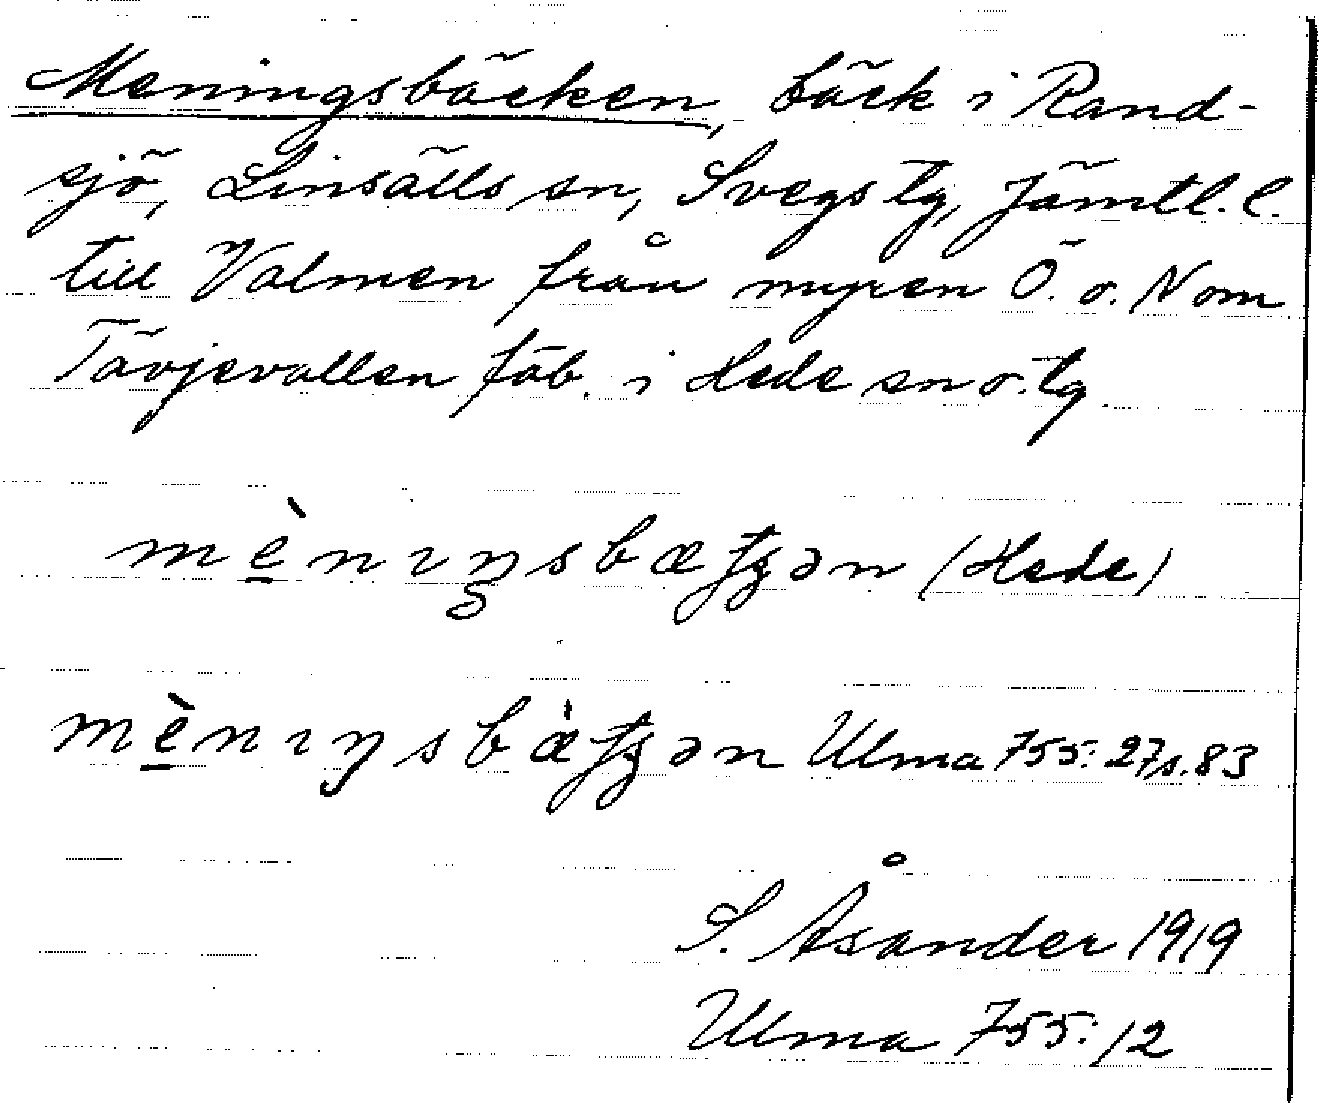 Meningsbäcken, bäck i Rand-
sjö, Linsälls sn, Svegs tg, Jämtl. l.
till Valmen från myren Ö. o. N om
Tävjevallen fäb. i Hede sn o. tg.
mè̠nıŋsbæʄʓən (Hede)
mè̠nıŋsbæ̀ʄʓən Ulma 755:27 s. 83
S. Åsander 1919
Ulma 755:12